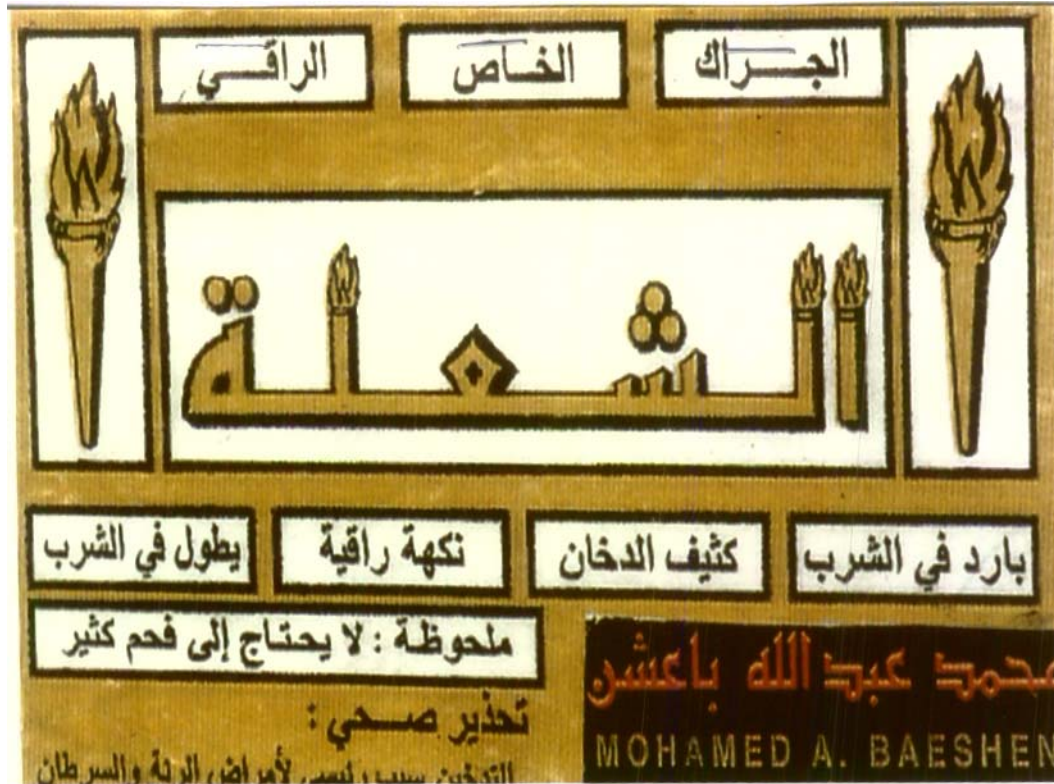 الجـــراك الخـاص الراقـــي
الشعلة
بارد في الشرب كثيف الدخان نكهة راقية يطول في الشرب
ملحوظة : لا يحتاج إلى فحم كثير
محمد عبد الله باعشن
MOHAMED A. BAESHEN
تحذير صـــحي :
التدخين سبب رئيسي لأمراض الرئة والسرطان